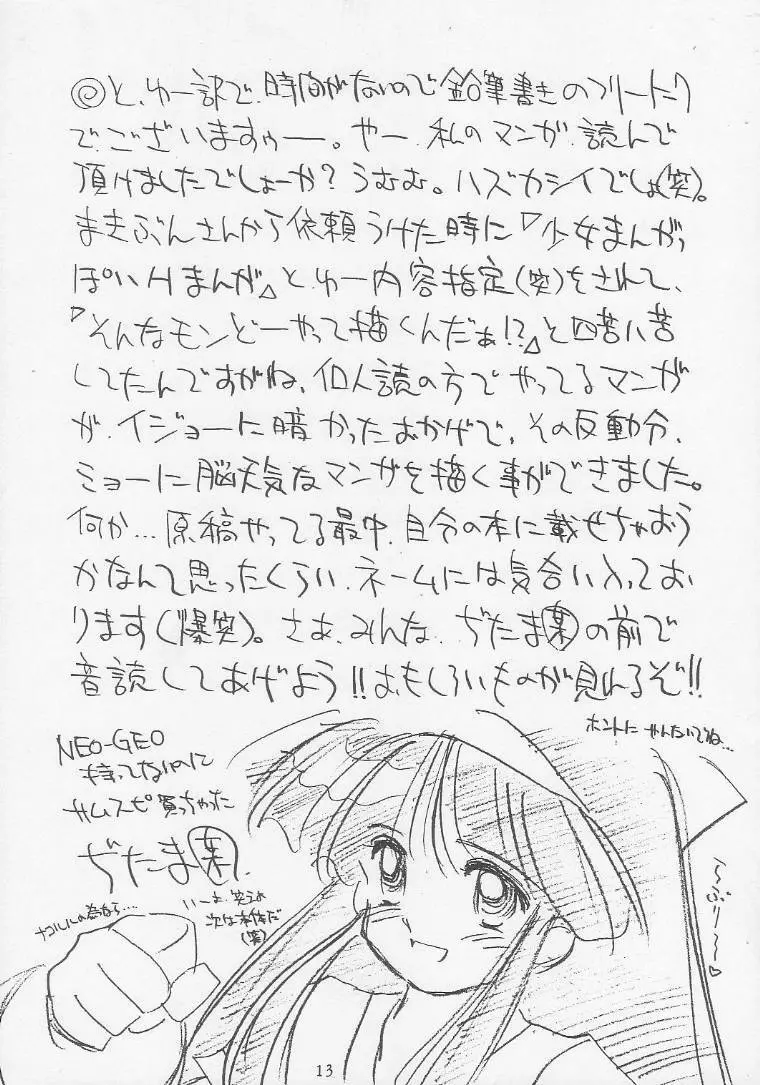 ◎と、ゆー訳で、時間がないので鉛筆書きのフリートーク
でございますぅー。やー、私のマンガ、読んで
頂けましたでしょーか?うむむ。ハズカシイでしょ(笑)。
まきぶんさんから依頼うけた時に『少女まんがっ
ぽいHまんが』と、ゆー内容指定(笑)をされて、
『そんなモンどーやって描くんだぁ!?』と四苦八苦
してたんですがね、個人誌の方でやってるマンガ
が、イジョーに暗かったおかげで、その反動分、
ミョーに脳天気なマンガを描く事ができました。
何か…原稿やってる最中、自分の本に載せちゃおう
かなんて思ったくらい、ネームには気合い入ってお
ります(爆笑)。さあ、みんな、ぢたま某の前で
音読してあげよう!!おもしろいものが見れるぞ!!
ホントに やんないでね…
NEO-GEO
持ってないのに
サムスピ買っちゃった
ぢたま某.
いーよ、笑えよ
次は本体だ
(笑)
ナコルルの為なら…
〜ぷりー〜♡
13